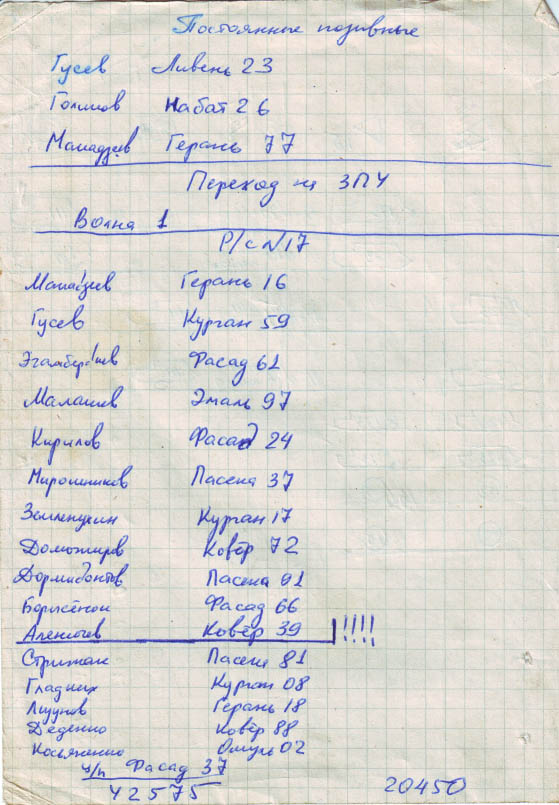 Постоянные позывные
Гусев Ливень 23
Голиков Набат 26
Мамадзиев Герань 77
Переход на ЗПУ
Волна 1
Р/с №17
Герань 16
Гусев Курган 59
Фасад 61
Малашев Эмаль 97
Кирилов Фасад 24
Мирошников Пасека 37
Курган 17
Доможиров Ковёр 72
Дормидонтов Пасека 91
Борисёнок Фасад 66
Ковёр 39 !!!!
Стрижак Пасека 81
Гладких Курган 08
Герань 18
Деденко Ковёр 88
Косьяненко 02
ч/п Фасад 37
42575
20450